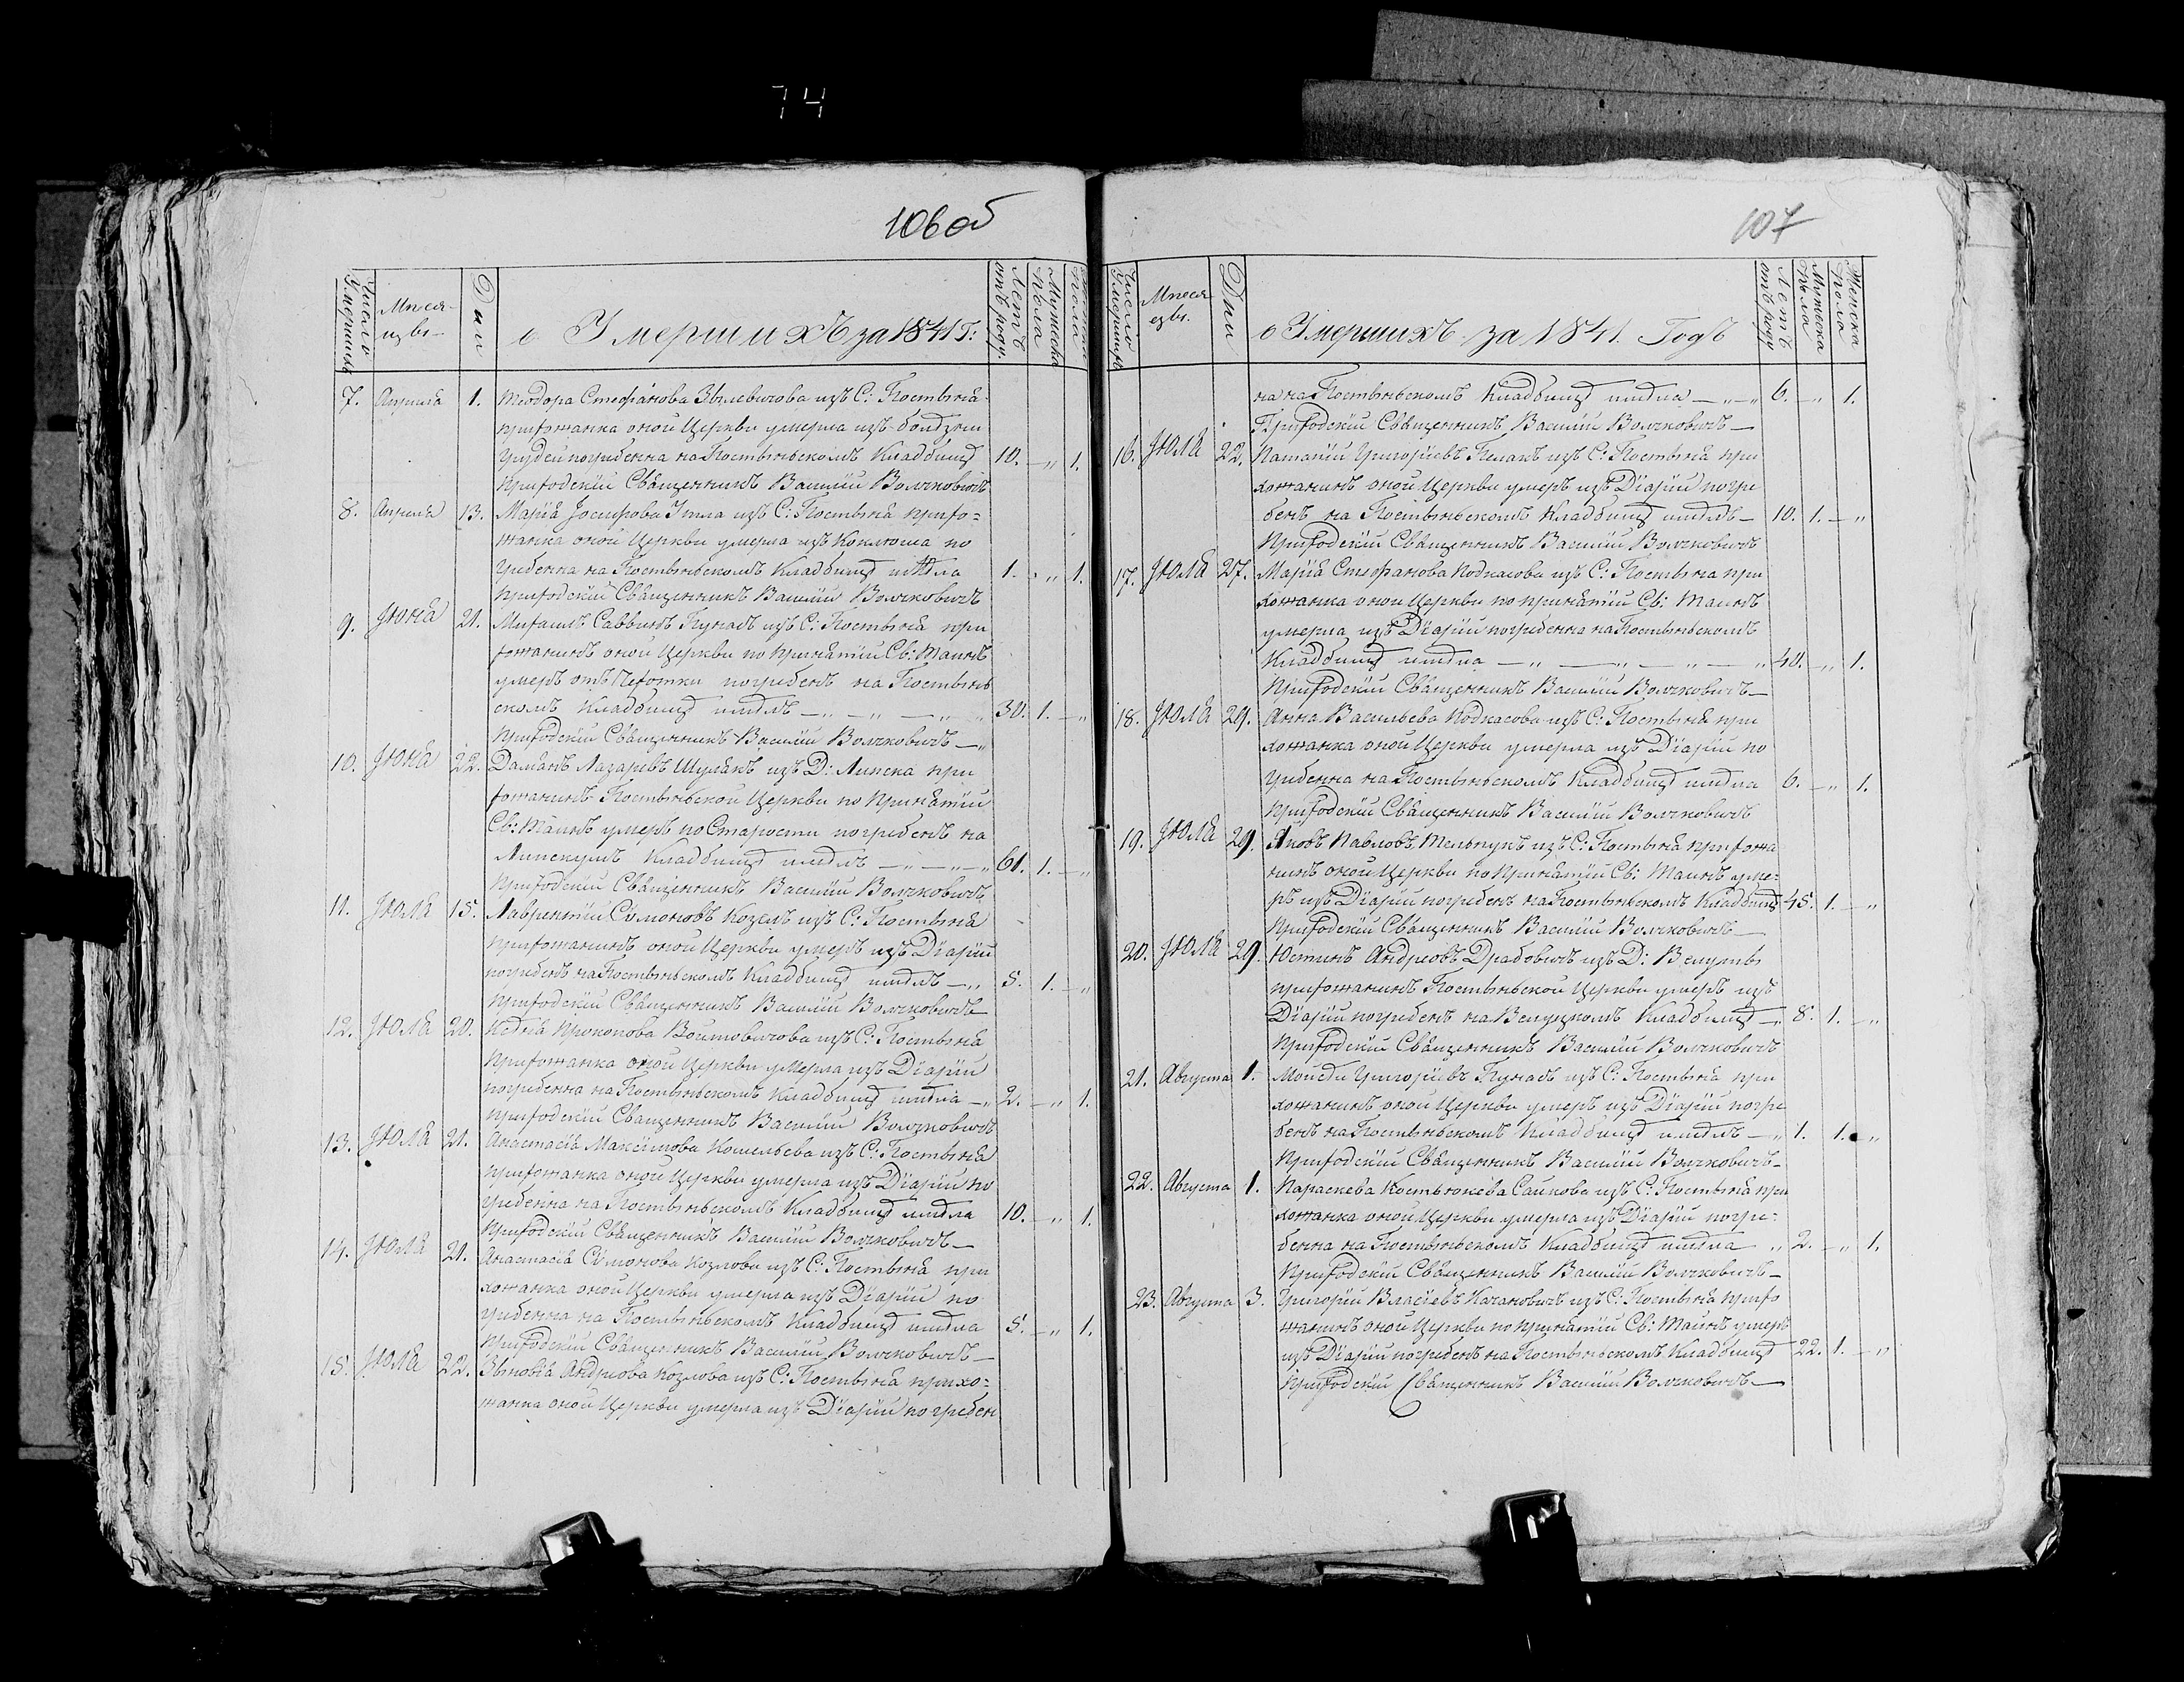 74
106 об
Число Умершихъ
Мѣся-
цъ
Дни
о Умершихъ за 1841 г:
Летъ отъ роду.
Мужеска Пола
Женска Пола
7. Апрѣля 1. Теодора Стефанова Зылевичова изъ С: Гостыня
прихожанка оной Церкви умерла изъ
Грудей погребенна на Гостыньскомъ Кладбищѣ 10. — „ 1.
Приходскій Священникъ Василій Волчковичъ
8. Апрѣля 13. Марія Іосифова изъ С: Гостыня прихо=
жанка оной Церкви умерла изъ Коклюша по
гребенна на Гостыньскомъ Кладбищѣ 1. — „ 1.
Приходскій Священникъ Василій Волчковичъ
9. Іюня 21. Михаилъ Саввинъ Кунахъ изъ С: Гостыня при
хожанинъ оной Церкви по Принятіи Св: Таинъ
умеръ отъ погребенъ на Гостынь
скомъ Кладбищѣ — „ — „ — „ — „ 30. 1. — „
Приходскій Священникъ Василій Волчковичъ — „
10. Іюня 22. Даміанъ Лазаревъ Шулякъ изъ Д: Липска при
хожанинъ Гостыньской Церкви по Принятіи
Св: Таинъ умеръ по Старости погребенъ на
Липскумъ Кладбищѣ — „ — „ — „ 61. 1. — „
Приходскій Священникъ Василій Волчковичъ
11. Іюля 15. Лаврентій Симоновъ Козелъ изъ С: Гостыня
Прихожанинъ оной Церкви умеръ изъ Діаріи
погребенъ на Гостыньскомъ Кладбищѣ — „ 5. 1. — „
Приходскій Священникъ Василій Волчковичъ
12. Іюля 20. Прокопова Войтовичова изъ С: Гостыня
Прихожанка оной Церкви умерла изъ Діаріи
погребенна на Гостыньскомъ Кладбищѣ — „ 2. — „ 1.
Приходскій Священникъ Василій Волчковичъ
13. Іюля 21. Анастасія Максимова Кошельева изъ С: Гостыня
прихожанка оной Церкви умерла изъ Діаріи по
гребенна на Гостыньскомъ Кладбищѣ 10. — „ 1.
Приходскій Священникъ Василій Волчковичъ —
14. Іюля 21. Анастасія Симонова Козлова изъ С: Гостыня при
хожанка оной Церкви умерла изъ Діаріи по
гребенна на Гостыньскомъ Кладбищѣ 5. — „ 1.
Приходскій Священникъ Василій Волчковичъ —
15. Іюля 22. Зѣновія Андреова Козлова изъ С: Гостыня прихо=
жанка оной Церкви умерла изъ Діаріи погребен
107
Число Умершихъ
Мѣся
цъ.
Дни
о Умершихъ за 1841. Годъ
Летъ отъ роду
Мужеска Пола
Женска Пола
на на Гостыньскомъ Кладбищѣ — „ — „ 6. — „ 1.
Приходскій Священникъ Василій Волчковичъ —
16. Іюля 22. Григоріевъ изъ С: Гостыня при
хожанинъ оной Церкви умеръ изъ Діаріи погре
бенъ на Гостыньскомъ Кладбищѣ — 10. 1. — „
Приходскій Священникъ Василій Волчковичъ
17. Іюля 27. Марія Стефанова Подкасова изъ С: Гостыня при
хожанка оной Церкви по принятіи Св: Таинъ
умерла изъ Діаріи погребенна на Гостыньскомъ
Кладбищѣ — „ — „ — „ — „ 40. — „ 1.
Приходскій Священникъ Василій Волчковичъ —
18. Іюля 29. Анна Васильева Подкасова изъ С: Гостыня при
хожанка оной Церкви умерла изъ Діаріи по
гребенна на Гостыньскомъ Кладбищѣ 6. — „ 1.
Приходскій Священникъ Василій Волчковичъ
19. Іюля 29. Яковъ Павловъ Мельнукъ изъ С: Гостыня прихожа
нинъ оной Церкви по Принятіи Св: Таинъ уме=
ръ изъ Діаріи погребенъ на Гостыньскомъ Кладбищѣ 45. 1. — „
Приходскій Священникъ Василій Волчковичъ —
20. Іюля 29. Юстинъ Андреовъ Драбовичъ изъ Д:
прихожанинъ Гостыньской Церкви умеръ изъ
Діаріи погребенъ на Кладбищѣ — „ 8. 1. — „
Приходскій Священникъ Василій Волчковичъ
21. Августа 1. Мойсѣй Григоріевъ Кунахъ изъ С: Гостыня при
хожанинъ оной Церкви умеръ изъ Діаріи погре
бенъ на Гостыньскомъ Кладбищѣ — „ 1. 1. — „
Приходскій Священникъ Василій Волчковичъ —
22. Августа 1. Параскева Сайкова изъ С: Гостыня при
хожанка оной Церкви умерла изъ Діаріи погре=
бенна на Гостыньскомъ Кладбищѣ „ 2. — „ 1.
Приходскій Священникъ Василій Волчковичъ —
23. Августа 3. Григорій Власіевъ Качановичъ изъ С: Гостыня прихо
жанинъ оной Церкви по принятіи Св: Таинъ умеръ
изъ Діаріи погребенъ на Гостыньскомъ Кладбищѣ 22. 1. — „
Приходскій Священникъ Василій Волчковичъ —